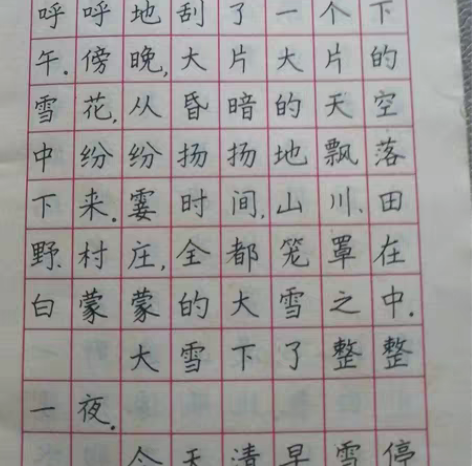 呼呼地刮了一个下
午.傍晚,大片大片的
雪花,从昏暗的天空
中纷纷扬扬地飘落
下来.霎时间,山川、田
野、村庄,全都笼罩在
白蒙蒙的大雪之中.
大雪下了整整
一夜.
今天清早雪停